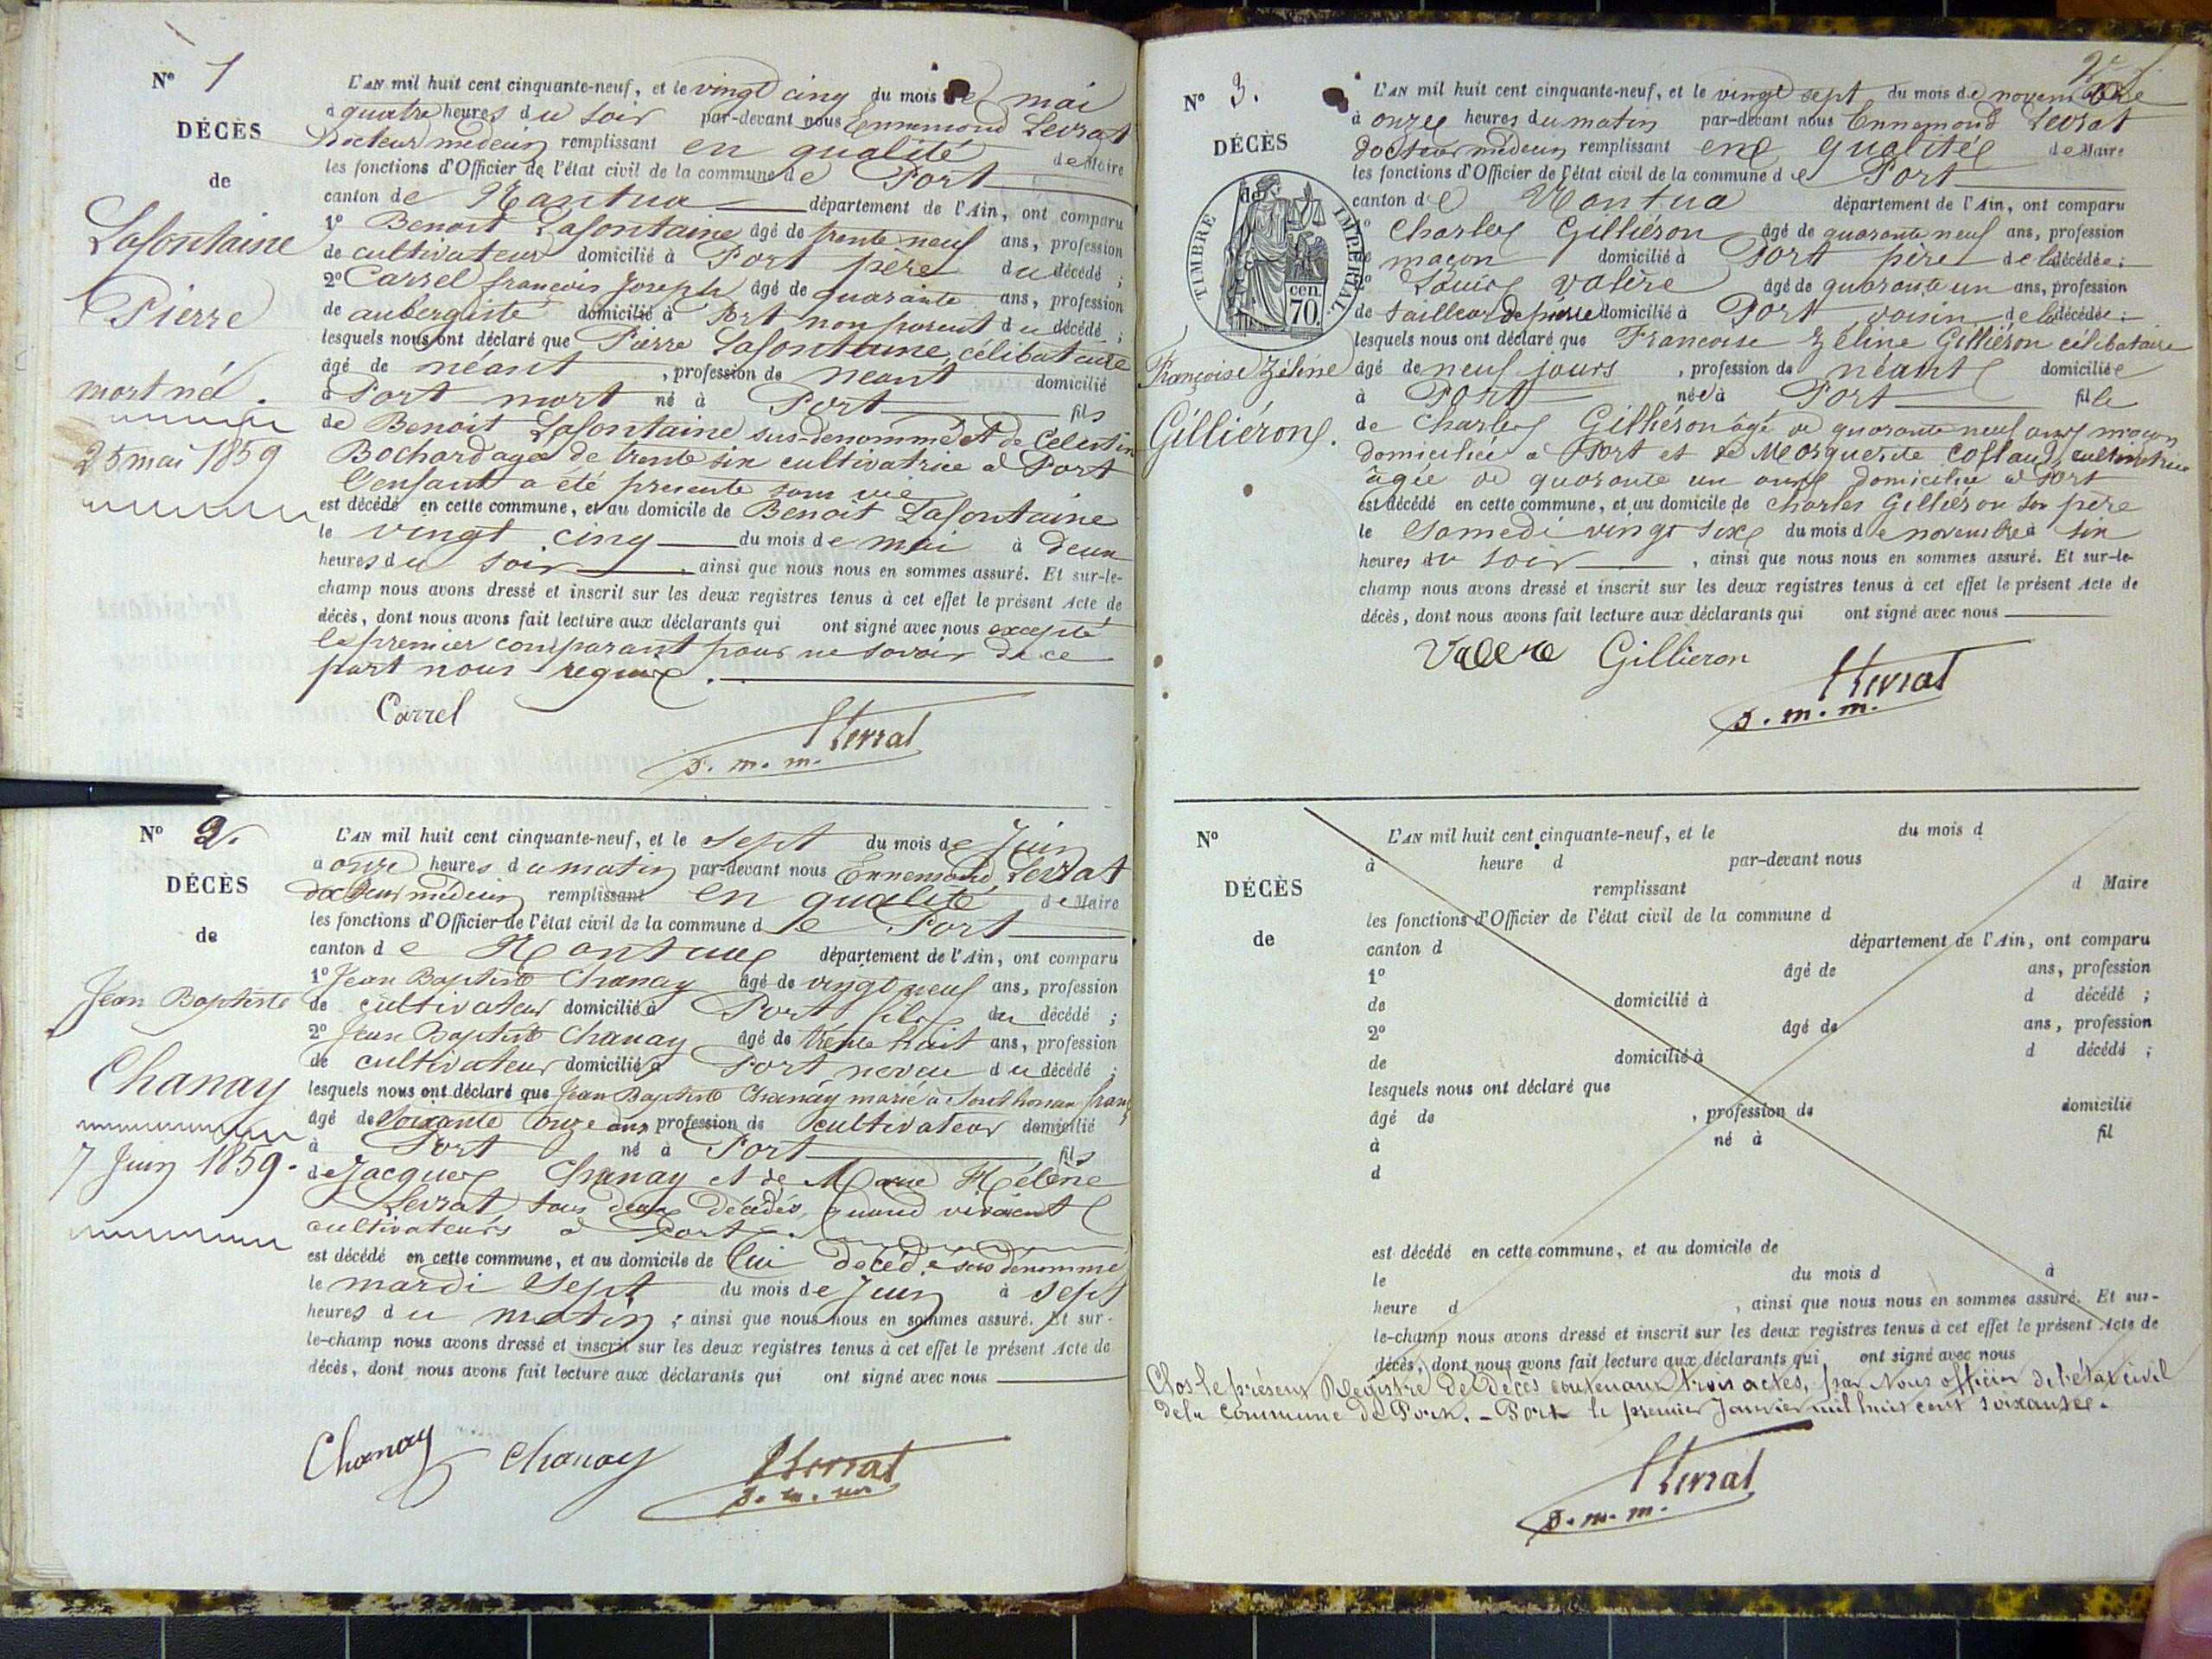 N° 1
DÉCÈS
de
Lafontaine
Pierre
mort né.
25 mai 1859
L'AN mil huit cent cinquante-neuf, et le vingt cinq du mois de mai
à quatre heures du soir par-devant nous Ennemond Levrat
Docteur médecin remplissant en qualité de Maire
les fonctions d'Officier de l'état civil de la commune de Port
canton de Nantua département de l'Ain, ont comparu
1° Benoit Lafontaine âgé de trente neuf ans, profession
de cultivateur domicilié à Port père du décédé ;
2° Carrel françois Joseph âgé de quarante ans, profession
de aubergiste domicilié à Port non parent du décédé ;
lesquels nous ont déclaré que Pierre Lafontaine, célibataire
âgé de néant, profession de néant domicilié
à Port mort né à Port fils
de Benoit Lafontaine sus-denommé et de Celestin
Bochard agée de trente six cultivatrice à Port
l'enfant a été présenté sans vie
est décédé en cette commune, et au domicile de Benoit Lafontaine
le vingt cinq du mois de mai à deux
heures du soir, ainsi que nous nous en sommes assuré. Et sur-le-
champ nous avons dressé et inscrit sur les deux registres tenus à cet effet le présent Acte de
décès, dont nous avons fait lecture aux déclarants qui ont signé avec nous excepté
le premier comparant pour ne savoir de ce
part nous requis.
Carrel
Levrat
d. m. m.
N° 2.
DÉCÈS
de
Jean Baptiste
Chanay
7 Juin 1859.
L'AN mil huit cent cinquante-neuf, et le sept du mois de Juin
à onze heures du matin par-devant nous Ennemond Levrat
docteur médecin remplissant en qualité de Maire
les fonctions d'Officier de l'état civil de la commune de Port
canton de Nantua département de l'Ain, ont comparu
1° Jean Baptiste Chanay âgé de vingt neuf ans, profession
de cultivateur domicilié à Port fils du décédé ;
2° Jean Baptiste Chanay âgé de trente huit ans, profession
de cultivateur domicilié à Port neveu du décédé ;
lesquels nous ont déclaré que Jean Baptiste Chanay marié à
âgé de soixante onze ans, profession de cultivateur domicilié
à Port né à Port fils
de Jacques Chanay et de Marie Hélène
Levrat tous deux décédés, quand vivaient
cultivateurs à Port.
est décédé en cette commune, et au domicile de lui décédé sus dénommé
le mardi sept du mois de Juin à sept
heures du matin ; ainsi que nous nous en sommes assuré. Et sur-
le-champ nous avons dressé et inscrit sur les deux registres tenus à cet effet le présent Acte de
décès, dont nous avons fait lecture aux déclarants qui ont signé avec nous
Chanay Chanay Levrat
d. m. m.
N° 3.
DÉCÈS
de
TIMBRE IMPÉRIAL
cen.
70.
Françoise Zéline
Gilliéron.
L'AN mil huit cent cinquante-neuf, et le vingt sept du mois de novembre
à onze heures du matin par-devant nous Ennemond Levrat
docteur médecin remplissant en qualité de Maire
les fonctions d'Officier de l'état civil de la commune de Port
canton de Nantua département de l'Ain, ont comparu
1° Charles Gilliéron âgé de quarante neuf ans, profession
de maçon domicilié à Port père de la décédée ;
2° Louis valère âgé de quarante un ans, profession
de tailleur de pierre domicilié à Port voisin de la décédée ;
lesquels nous ont déclaré que Françoise Zéline Gilliéron célibataire
âgé de neuf jours, profession de néant domiciliée
à Port née à Port fille
de Charles Gilliéron âgé de quarante neuf ans maçon
domicilié à Port et de Marguerite cultivatrice
âgée de quarante un ans domiciliée à Port
est décédé en cette commune, et au domicile de Charles Gilliéron son père
le Samedi vingt six du mois de novembre à six
heures du soir, ainsi que nous nous en sommes assuré. Et sur-le-
champ nous avons dressé et inscrit sur les deux registres tenus à cet effet le présent Acte de
décès, dont nous avons fait lecture aux déclarants qui ont signé avec nous
Valere Gillieron
Levrat
d. m. m.
N°
DÉCÈS
de
L'AN mil huit cent cinquante-neuf, et le du mois d
à heure d par-devant nous
remplissant d Maire
les fonctions d'Officier de l'état civil de la commune d
canton d département de l'Ain, ont comparu
1° âgé de ans, profession
de domicilié à d décédé ;
2° âgé de ans, profession
de domicilié à d décédé ;
lesquels nous ont déclaré que
âgé de, profession de domicilié
à né à fil
d
est décédé en cette commune, et au domicile de
le du mois d à
heure d, ainsi que nous nous en sommes assuré. Et sur-
le-champ nous avons dressé et inscrit sur les deux registres tenus à cet effet le présent Acte de
décès, dont nous avons fait lecture aux déclarants qui ont signé avec nous
Clos le présent Registre de décès contenant trois actes, par Nous officier de l'état civil
de la Commune de Port. - Port le premier Janvier mil huit cent soixante.
Levrat
d. m. m.